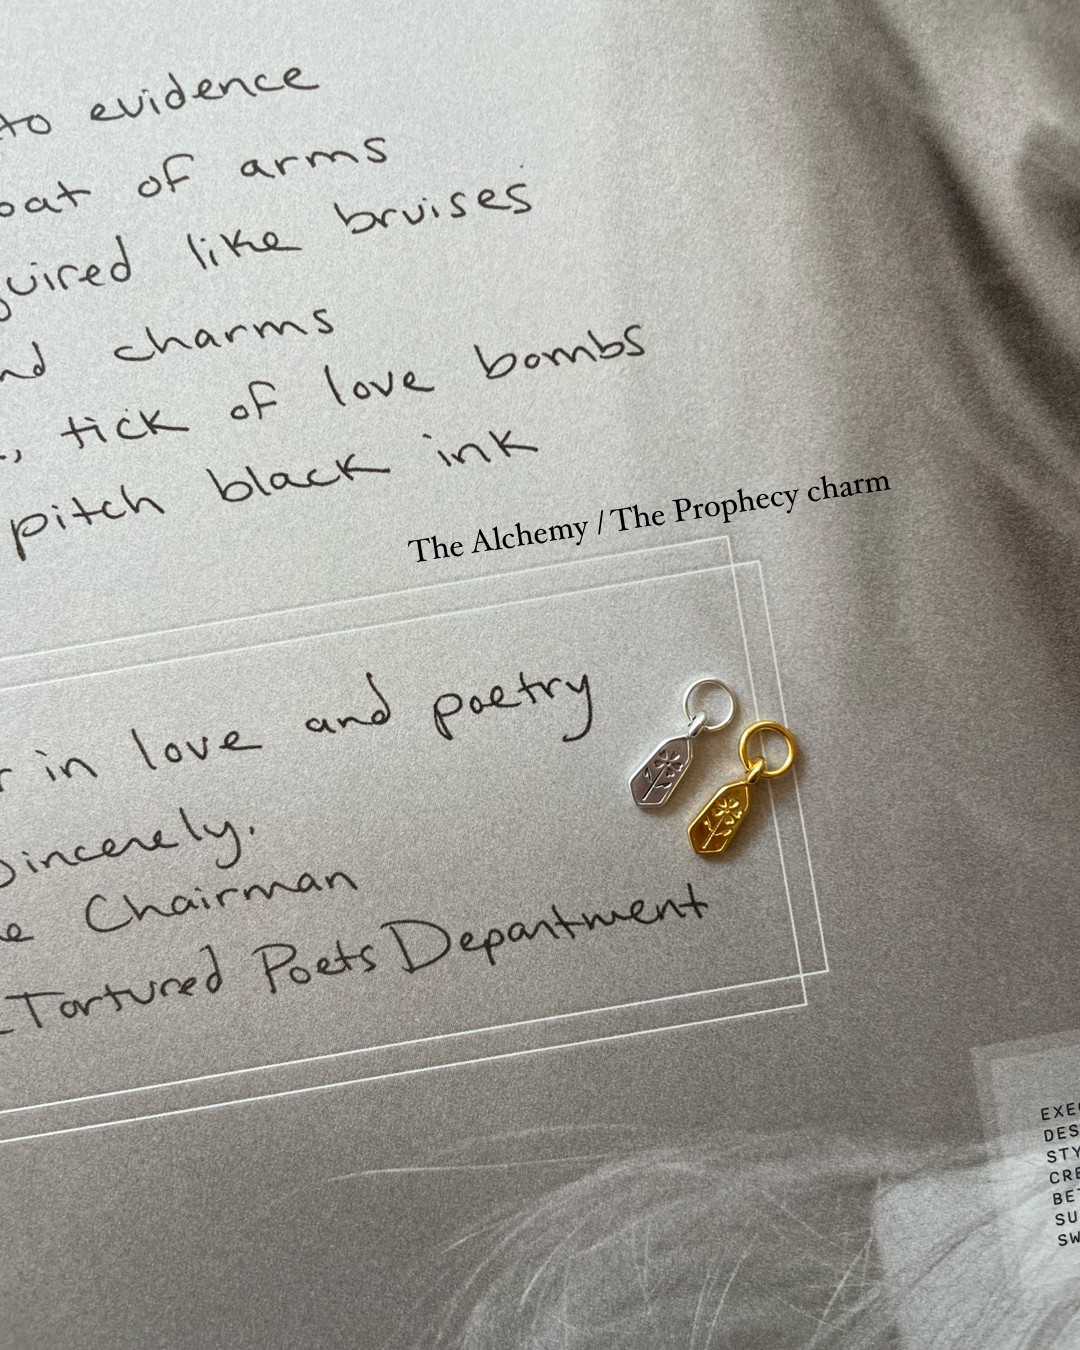 to evidence
oat of arms
quired like bruises
nd charms
, tick of love bombs
pitch black ink
The Alchemy / The Prophecy charm
r in love and poetry
Sincerely.
e Chairman
Tortured Poets Department
EXE
DES
STY
CRE
BET
SU
SW